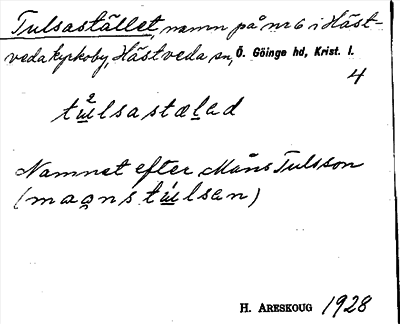 Tulsastället, namn på nr 6 i Häst-
veda kyrkoby, Hästveda sn, Ö. Göinge hd, Krist. l.
4
tulsastælad
Namnet efter Måns Tulsson
(magns tulsan)
H. ARESKOUG 1928